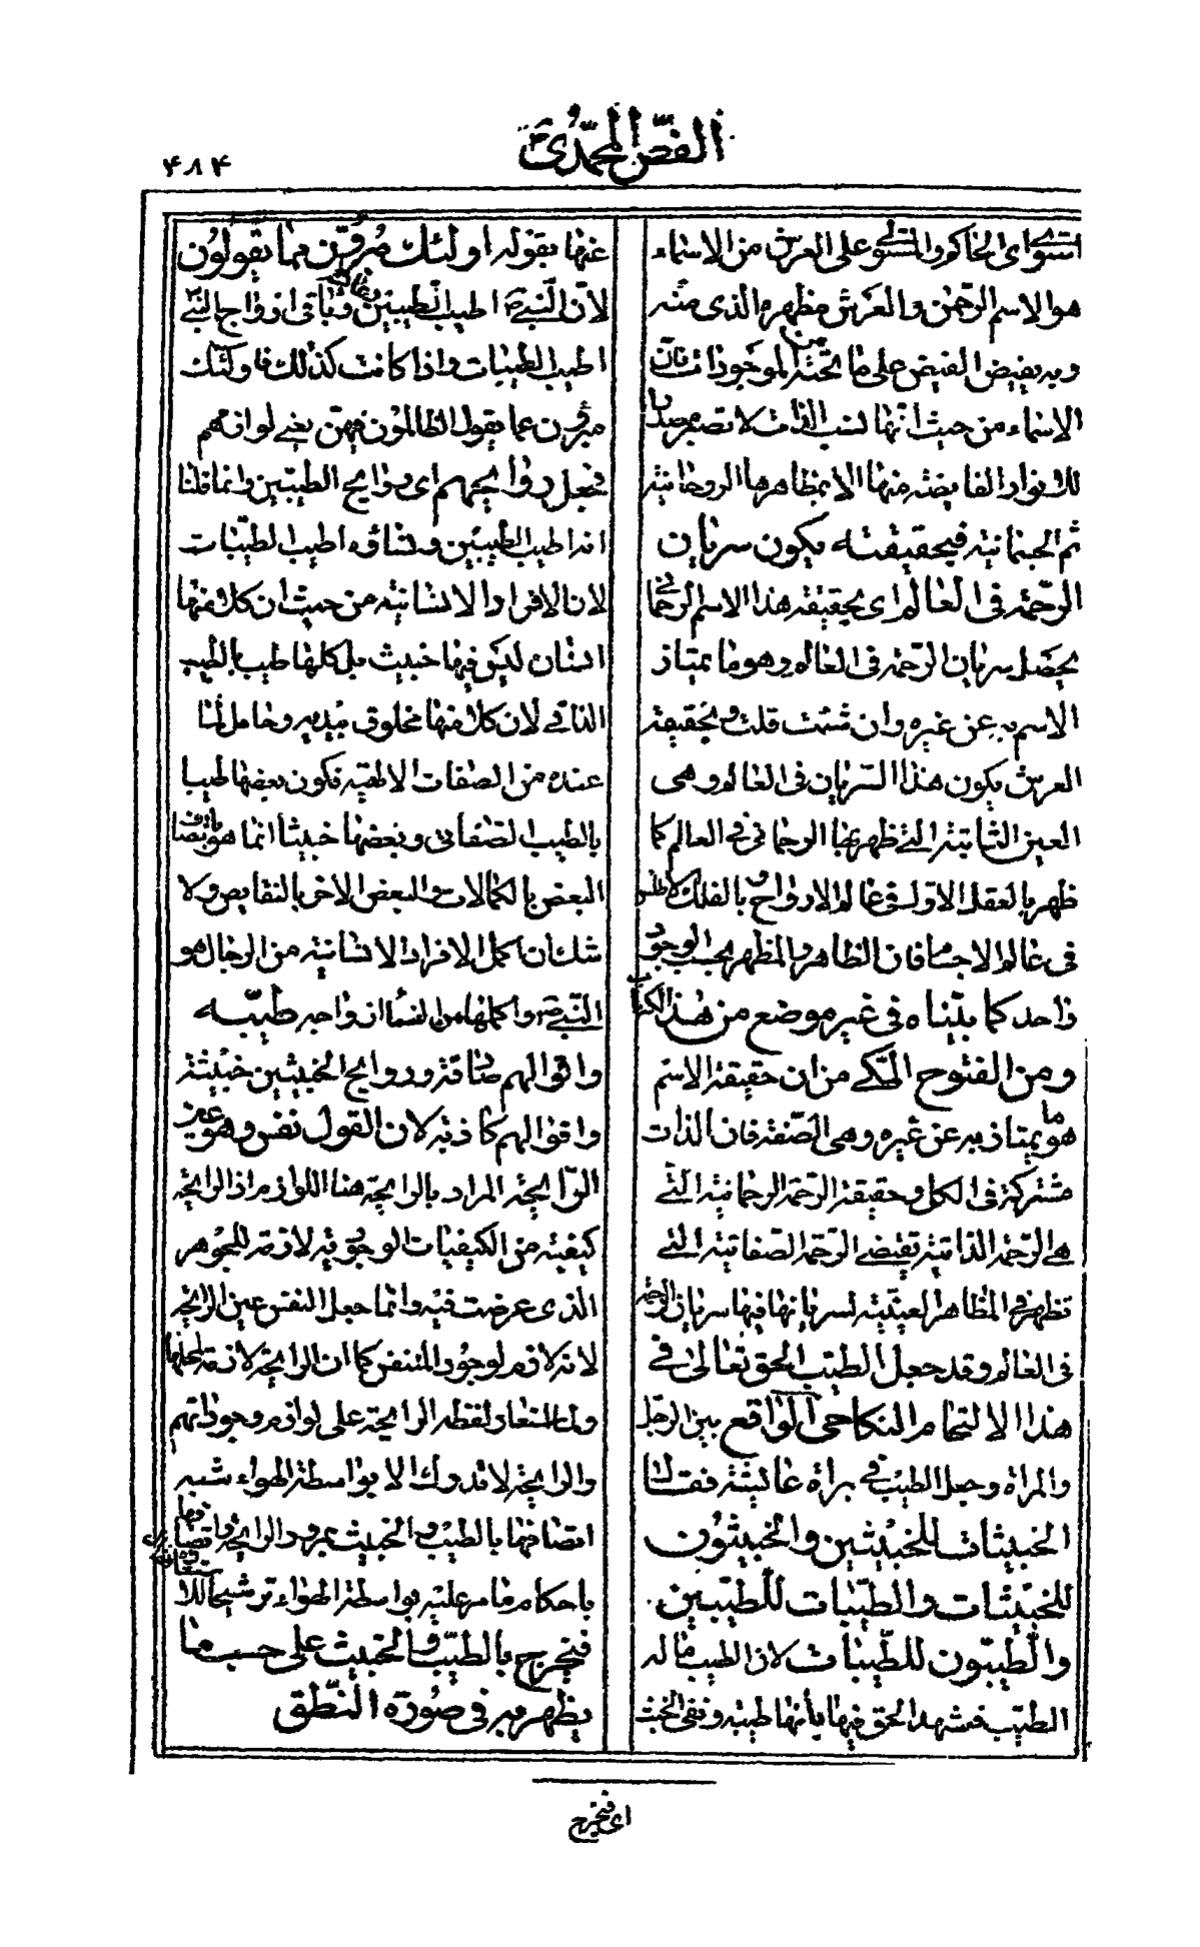 الفصّ المحمّدىّ
۴۸۴
استوى اى الحاكم والمستولى على العرش من الاسماء
هو الاسم الرّحمن والعرش مظهره الذى منه
وبه يفيض الفيض على ما تحته من الموجودات فانّ
الاسماء من حيث انّها لنسب الذات لا تصير مصدرا
للانوار الفايضة منها الا بمظاهرها الروحانية
ثم الجسمانية فبحقيقته يكون سريان
الرّحمة فى العالم اى بحقيقة هذا الاسم الرحمانى
يحصل سريان الرّحمة فى العالم وهو ما يمتاز
الاسم به عن غيره وان شئت قلت وبحقيقة
العرش يكون هذا السّريان فى العالم وهى
العين الثابتة التى ظهر بها الرحمانى فى العالم كما
ظهر بالعقل الاوّل فى عالم الارواح وبالفلك الاطلس
فى عالم الاجسام فان الظاهر والمظهر بحسب الوجود
واحد كما بيّناه فى غير موضع من هذا الكتاب
ومن الفتوح المكّى من ان حقيقة الاسم
هو ما يمتاز به عن غيره وهى الصّفة فان الذات
مشتركة فى الكل وحقيقة الرّحمة الرحمانية التى
هى الرّحمة الذاتية تقتضى الرّحمة الصّفاتية التى
تظهر فى المظاهر العينيّة لسريانها فيها سريان الرّحمة
فى العالم وقد جعل الطيّب الحق تعالى فى
هذا الالتحام النكاحى الواقع بين الرجل
والمراة وجعل الطيّب فى براة عائشة فقال
الخبيثات للخبيثين والخبيثون
للخبيثات والطيّبات للطيّبين
والطيّبون للطيّبات لان الطيب ماله
الطيّب فشهد الحق فيها بأنها طيبة ونفى الخبث
عنها بقوله اولئك مبرؤن مما يقولون
لانّ النّبى اطيب الطيبين وباقى ازواج النّبى
اطيب الطيبات واذا كانت كذلك فاولئك
مبرؤن عما يقول الظالمون فيهنّ يعنى لوازمهم
فجعل روايحهم اى روايح الطيّبين وانما قلنا
انه اطيب الطيبين ونساؤه اطيب الطيّبات
لان الافراد الانسانية من حيث ان كلا منها
انسان ليس فيها خبيث بل كلها طيب بالطيب
الذاتى لان كلا منها مخلوق بيديه وحامل لما
عنده من الصفات الالهية فكون بعضها طيبا
بالطيب الصّفاتى وبعضها خبيثا انما هو باتصاف
البعض بالكمالات والبعض الاخر بالنقايص ولا
شك ان اكمل الافراد الانسانية من الرجال هو
النّبى واكملها من النساء ازواجه طيّبه
واقوالهم صادقة وروايح الخبيثين خبيثة
واقوالهم كاذبة لان القول نفس وهو عين
الرّايحة المراد بالرايحة هنا اللوازم اذ الرايحة
كيفية من الكيفيات الوجودية لازمة للجوهر
الذى عرضت فيه وانما جعل النفس عين الرايحة
لانه لازم لوجود المتنفس كما ان الرايحة لازمة لمحلها
ولما استعار لفظة الرايحة على لوازم وجوداتهم
والرايحة لا تدرك الا بواسطة الهواء شبه
اتصافها بالطيب والخبيث بمرور الرايحة واتصافها
باحكام ما مر عليه بواسطة الهواء ترشيحا للا
ستعارة
فيخرج بالطيّب والخبيث على حسب ما
يظهر به فى صورة النّطق
اى فيخرج